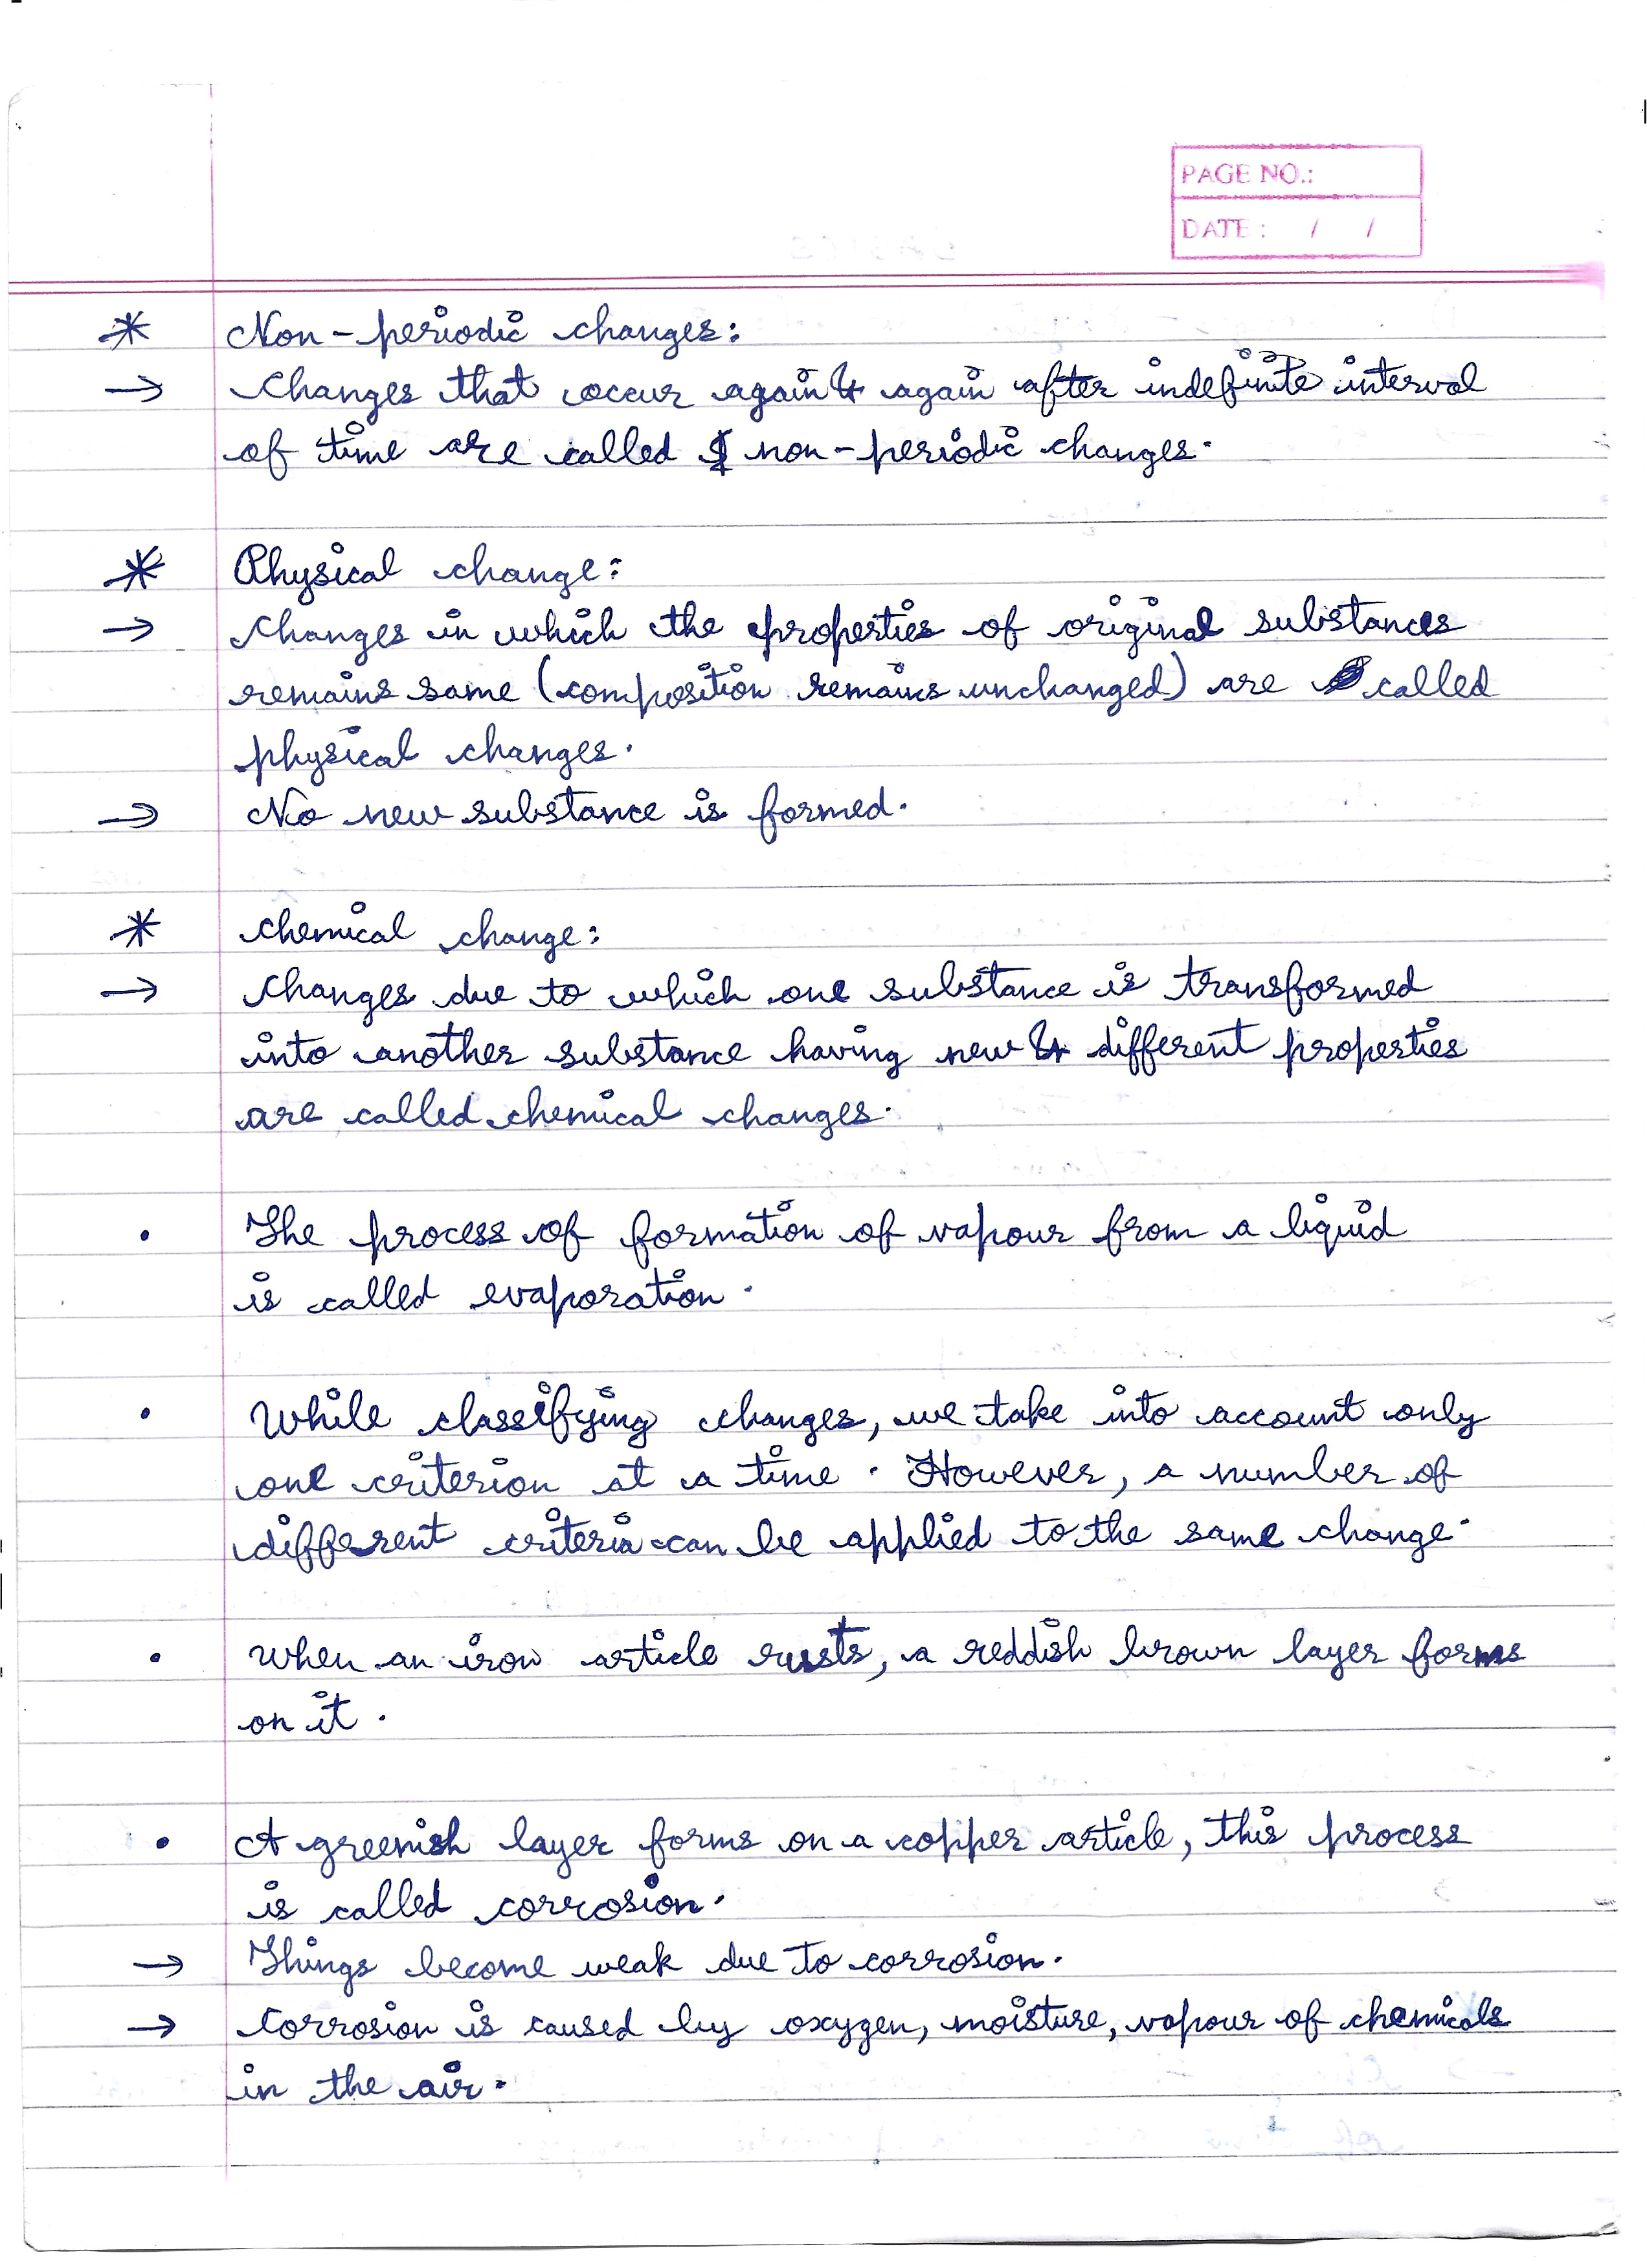 PAGE NO.:
DATE : / /
* Non-periodic changes:
→ Changes that occur again & again after indefinite interval
of time are called non-periodic changes.
* Physical change:
→ Changes in which the properties of original substances
remains same (composition remains unchanged) are called
physical changes.
→ No new substance is formed.
* Chemical change:
→ Changes due to which one substance is transformed
into another substance having new & different properties
are called chemical changes.
• The process of formation of vapour from a liquid
is called evaporation.
• While classifying changes, we take into account only
one criterion at a time. However, a number of
different criteria can be applied to the same change.
• When an iron article rusts, a reddish brown layer forms
on it.
• A greenish layer forms on a copper article, this process
is called corrosion.
→ Things become weak due to corrosion.
→ Corrosion is caused by oxygen, moisture, vapour of chemicals
in the air.